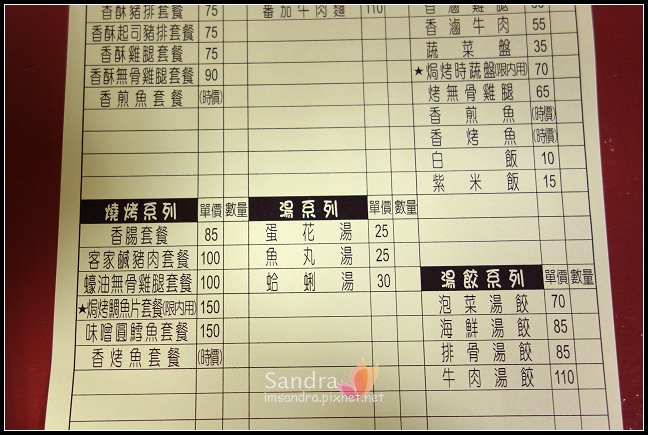 香酥豬排套餐 75
香酥起司豬排套餐 75
香酥雞腿套餐 75
香酥無骨雞腿套餐 90
香煎魚套餐 (時價)
燒烤系列 單價 數量
香腸套餐 85
客家鹹豬肉套餐 100
蠔油無骨雞腿套餐 100
★焗烤鯛魚片套餐(限內用) 150
味噌圓鱈魚套餐 150
香烤魚套餐 (時價)
番茄牛肉麵 110
湯系列 單價 數量
蛋花湯 25
魚丸湯 25
蛤蜊湯 30
香滷雞腿
香滷牛肉 55
蔬菜盤 35
★焗烤時蔬盤(限內用) 70
烤無骨雞腿 65
香煎魚 (時價)
香烤魚 (時價)
白飯 10
紫米飯 15
湯餃系列 單價 數量
泡菜湯餃 70
海鮮湯餃 85
排骨湯餃 85
牛肉湯餃 110
Sandra
imsandra.pixnet.net